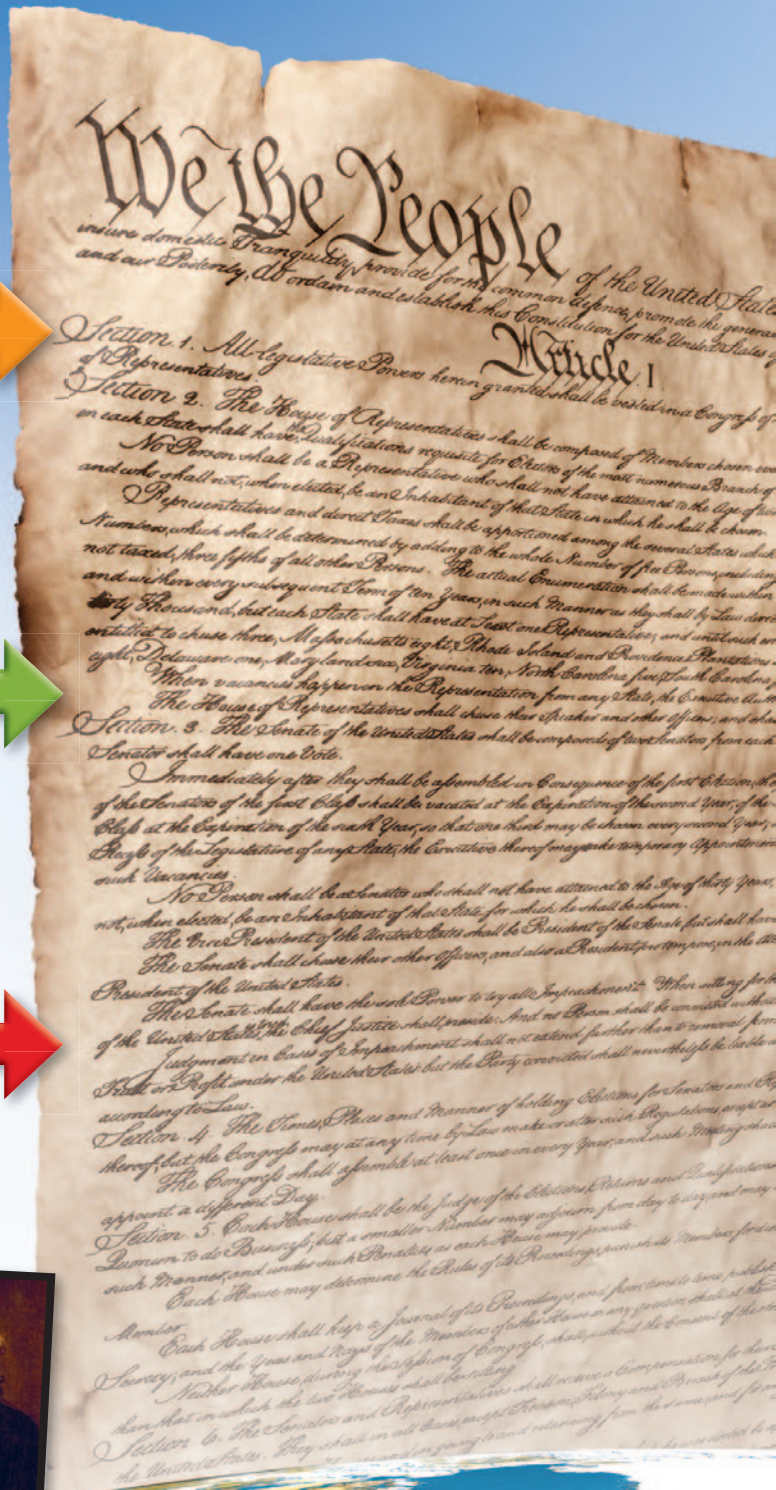 We the People of the United States
insure domestic Tranquility, provide for the common defence, promote the general
and our Posterity, do ordain and establish this Constitution for the United States
Article I
Section 1. All legislative Powers herein granted shall be vested in a Congress of
of Representatives.
Section 2. The House of Representatives shall be composed of Members chosen
in each State shall have the Qualifications requisite for Electors of the most numerous Branch of
No Person shall be a Representative who shall not have attained to the Age of
and who shall not, when elected, be an Inhabitant of that State in which he shall be chosen.
Representatives and direct Taxes shall be apportioned among the several States which
Numbers, which shall be determined by adding to the whole Number of free Persons, including
not taxed, three fifths of all other Persons. The actual Enumeration shall be made within
and within every subsequent Term of ten Years, in such Manner as they shall by Law
thirty Thousand, but each State shall have at Least one Representative; and until such
entitled to chuse three, Massachusetts eight, Rhode Island and Providence Plantations
eight, Delaware one, Maryland six, Virginia ten, North Carolina five, South Carolina
When vacancies happen in the Representation from any State, the Executive
The House of Representatives shall chuse their Speaker and other Officers; and
Section 3. The Senate of the United States shall be composed of two Senators from each
Senator shall have one Vote.
Immediately after they shall be assembled in Consequence of the first Election,
of the Senators of the first Class shall be vacated at the Expiration of the second Year, of the
Class at the Expiration of the sixth Year, so that one third may be chosen every second Year;
Recess of the Legislature of any State, the Executive thereof may make temporary
such Vacancies.
No Person shall be a Senator who shall not have attained to the Age of thirty Years,
not, when elected, be an Inhabitant of that State for which he shall be chosen.
The Vice President of the United States shall be President of the Senate, but shall have
The Senate shall chuse their other Officers, and also a President pro tempore, in the
President of the United States.
The Senate shall have the sole Power to try all Impeachments. When sitting for
of the United States, the Chief Justice shall preside: And no Person shall be convicted
Judgment in Cases of Impeachment shall not extend further than to removal from
Trust or Profit under the United States: but the Party convicted shall nevertheless be liable
according to Law.
Section 4. The Times, Places and Manner of holding Elections for Senators and
thereof; but the Congress may at any time by Law make or alter such Regulations, except
The Congress shall assemble at least once in every Year, and such Meeting
appoint a different Day.
Section 5. Each House shall be the Judge of the Elections, Returns and Qualifications
Quorum to do Business; but a smaller Number may adjourn from day to day, and may
such Manner, and under such Penalties as each House may provide.
Each House may determine the Rules of its Proceedings, punish its Members for
Member.
Each House shall keep a Journal of its Proceedings, and from time to time
Secrecy; and the Yeas and Nays of the Members of either House on any question shall at the
Neither House, during the Session of Congress, shall, without the Consent of the
than that in which the two Houses shall be sitting.
Section 6. The Senators and Representatives shall receive a Compensation for
the United States. They shall in all Cases, except Treason, Felony and Breach of the
in going to and returning from the same; and for